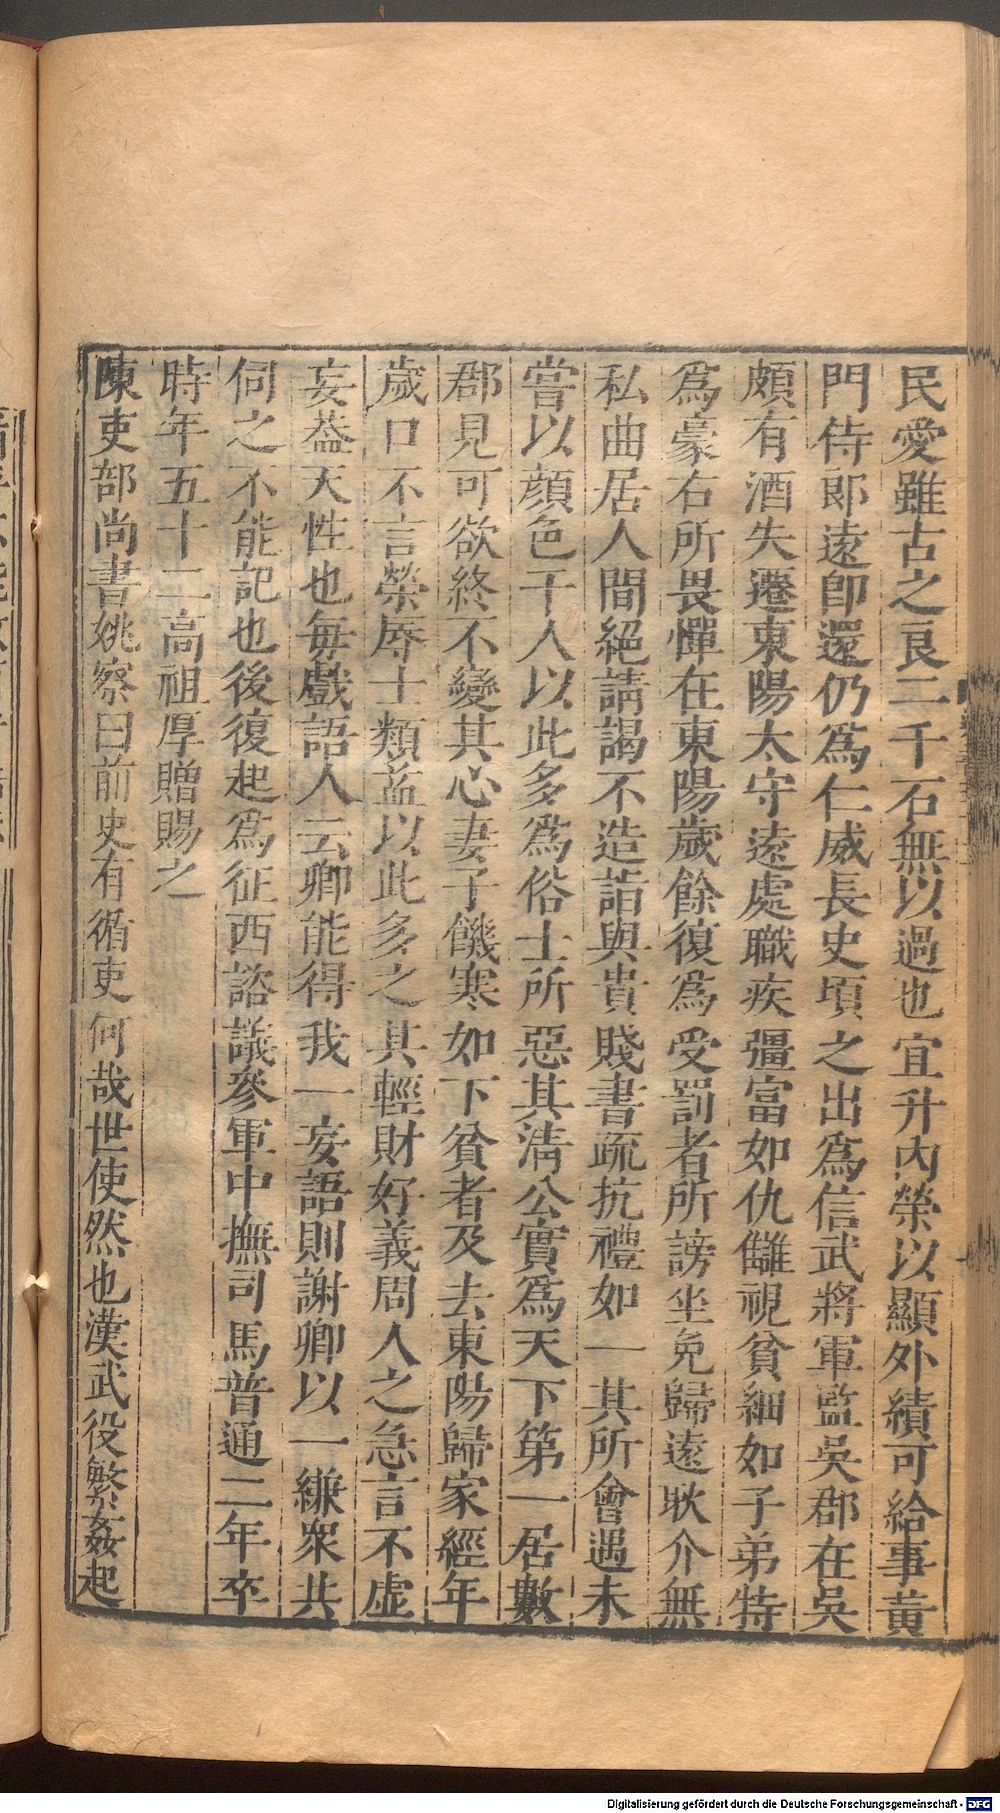 民愛雖古之良二千石無以過也宜升內榮以顯外績可給事黃
門侍郎遠卽還仍爲仁威長史頃之出爲信武將軍監吳郡在吳
頗有酒失遷東陽太守遠處職疾彊富如仇讎視貧細如子弟特
爲豪右所畏憚在東陽歲餘復爲受罰者所謗坐免歸遠耿介無
私曲居人間絕請謁不造詣與貴賤書疏抗禮如一其所會遇未
嘗以顔色干人以此多爲俗士所惡其淸公實爲天下第一居數
郡見可欲終不變其心妻子饑寒如下貧者及去東陽歸家經年
歲口不言榮辱士類益以此多之其輕財好義周人之急言不虛
妄葢天性也每戲語人云卿能得我一妄語則謝卿以一縑衆共
伺之不能記也後復起爲征西諮議參軍中撫司馬普通二年卒
時年五十二高祖厚贈賜之
陳吏部尚書姚察曰前史有循吏何哉世使然也漢武役繁姦起
Digitalisierung gefördert durch die Deutsche Forschungsgemeinschaft - DFG